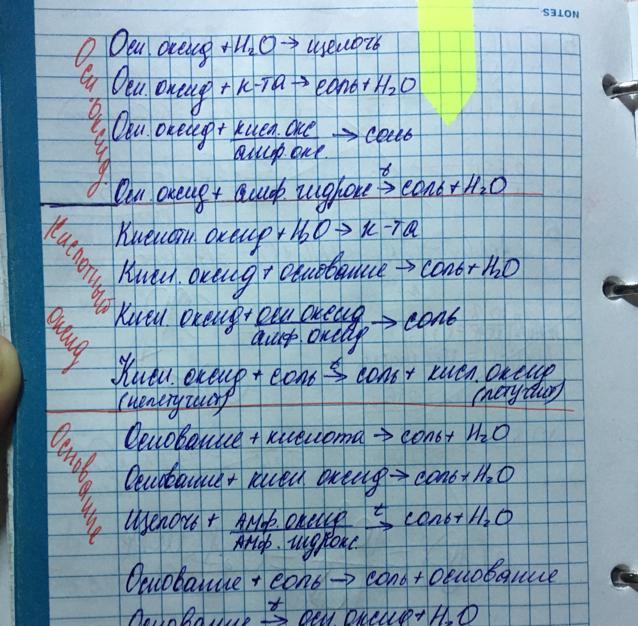 NOTES
Осн. оксид
Осн. оксид + H₂O → щелочь
Осн. оксид + к-та → соль + H₂O
Осн. оксид + кисл. окс / амф окс. → соль
Осн. оксид + амф. гидрокс t→ соль + H₂O
Кислотный оксид
Кислотн. оксид + H₂O → к-та
Кисл. оксид + основание → соль + H₂O
Кисл. оксид + осн оксид / амф. оксид → соль
Кисл. оксид + соль t→ соль + кисл. оксид
(нелетучий) (летучий)
Основание
Основание + кислота → соль + H₂O
Основание + кисл. оксид → соль + H₂O
Щелочь + АМф. оксид / АМф. гидрокс. t→ соль + H₂O
Основание + соль → соль + основание
Основание t→ осн. оксид + H₂O